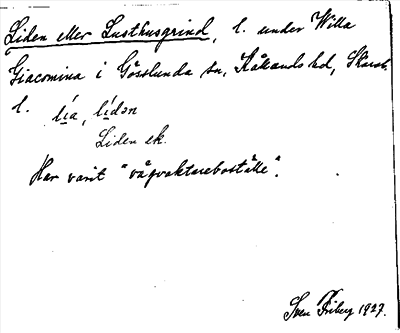 Liden eller Lusthusgrind, l. under Willa
Giacomina i Gösslunda sn, Kållands hd, Skarab.
l. lía, lídən
Liden ek.
Har varit "vägvaktareboställe".
Sven Friberg 1927.